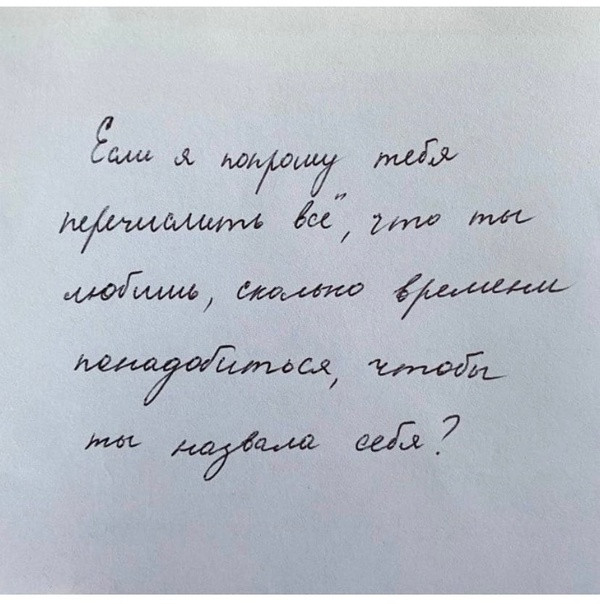 Если я попрошу тебя
перечислить всё, что ты
любишь, сколько времени
понадобиться, чтобы
ты назвала себя?